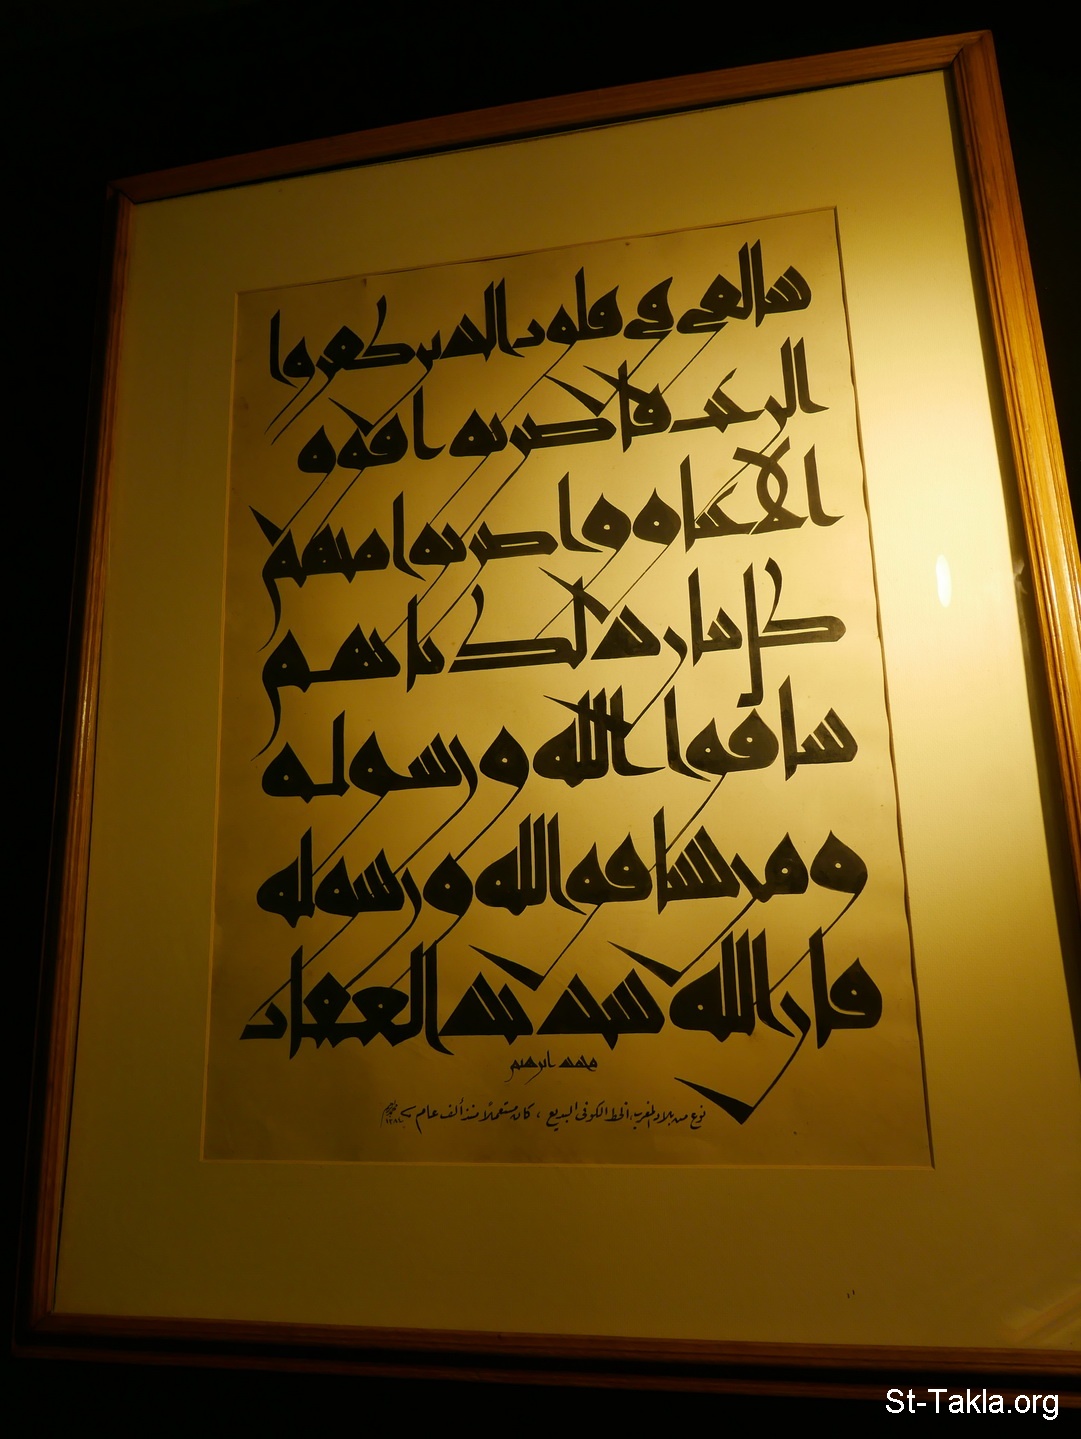 سالقي في قلوب الذين كفروا
الرعب فاضربوا فوق
الاعناق واضربوا منهم
كل بنان ذلك بانهم
شاقوا الله ورسوله
ومن يشاقق الله ورسوله
فان الله شديد العقاب
محمد ابرهيم
نوع من بلاد المغرب، الخط الكوفى البديع، كان مستعملاً منذ ألف عام
St-Takla.org